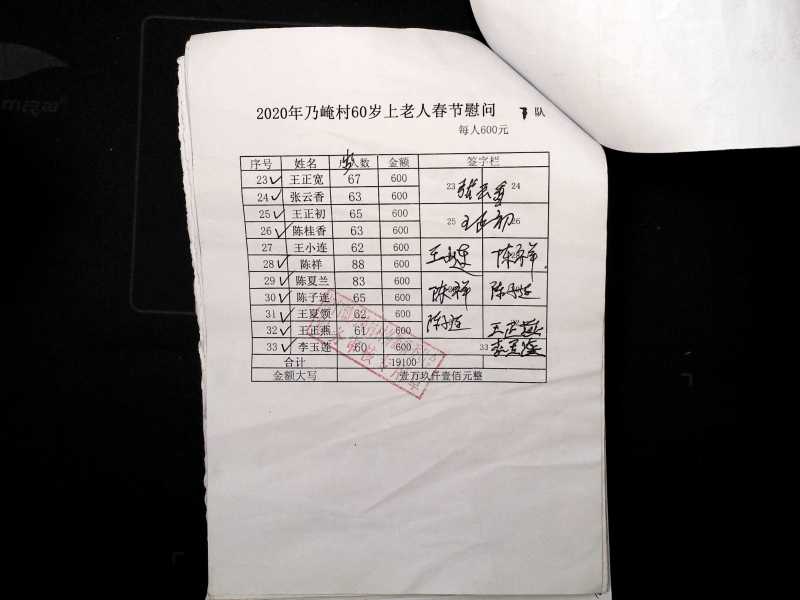 2020年乃崦村60岁上老人春节慰问 队
每人600元
序号 姓名 数 金额 签字栏
23 王正宽 67 600 23 张云香 24
24 张云香 63 600
25 王正初 65 600 25 王正初 26
26 陈桂香 63 600
27 王小连 62 600 王小连 陈祥
28 陈祥 88 600
29 陈夏兰 83 600 陈祥 陈子连
30 陈子连 65 600
31 王夏颂 62 600 陈子连 王正燕
32 王正燕 61 600
33 李玉莲 60 600 33 李玉莲
合计 19100
金额大写 壹万玖仟壹佰元整